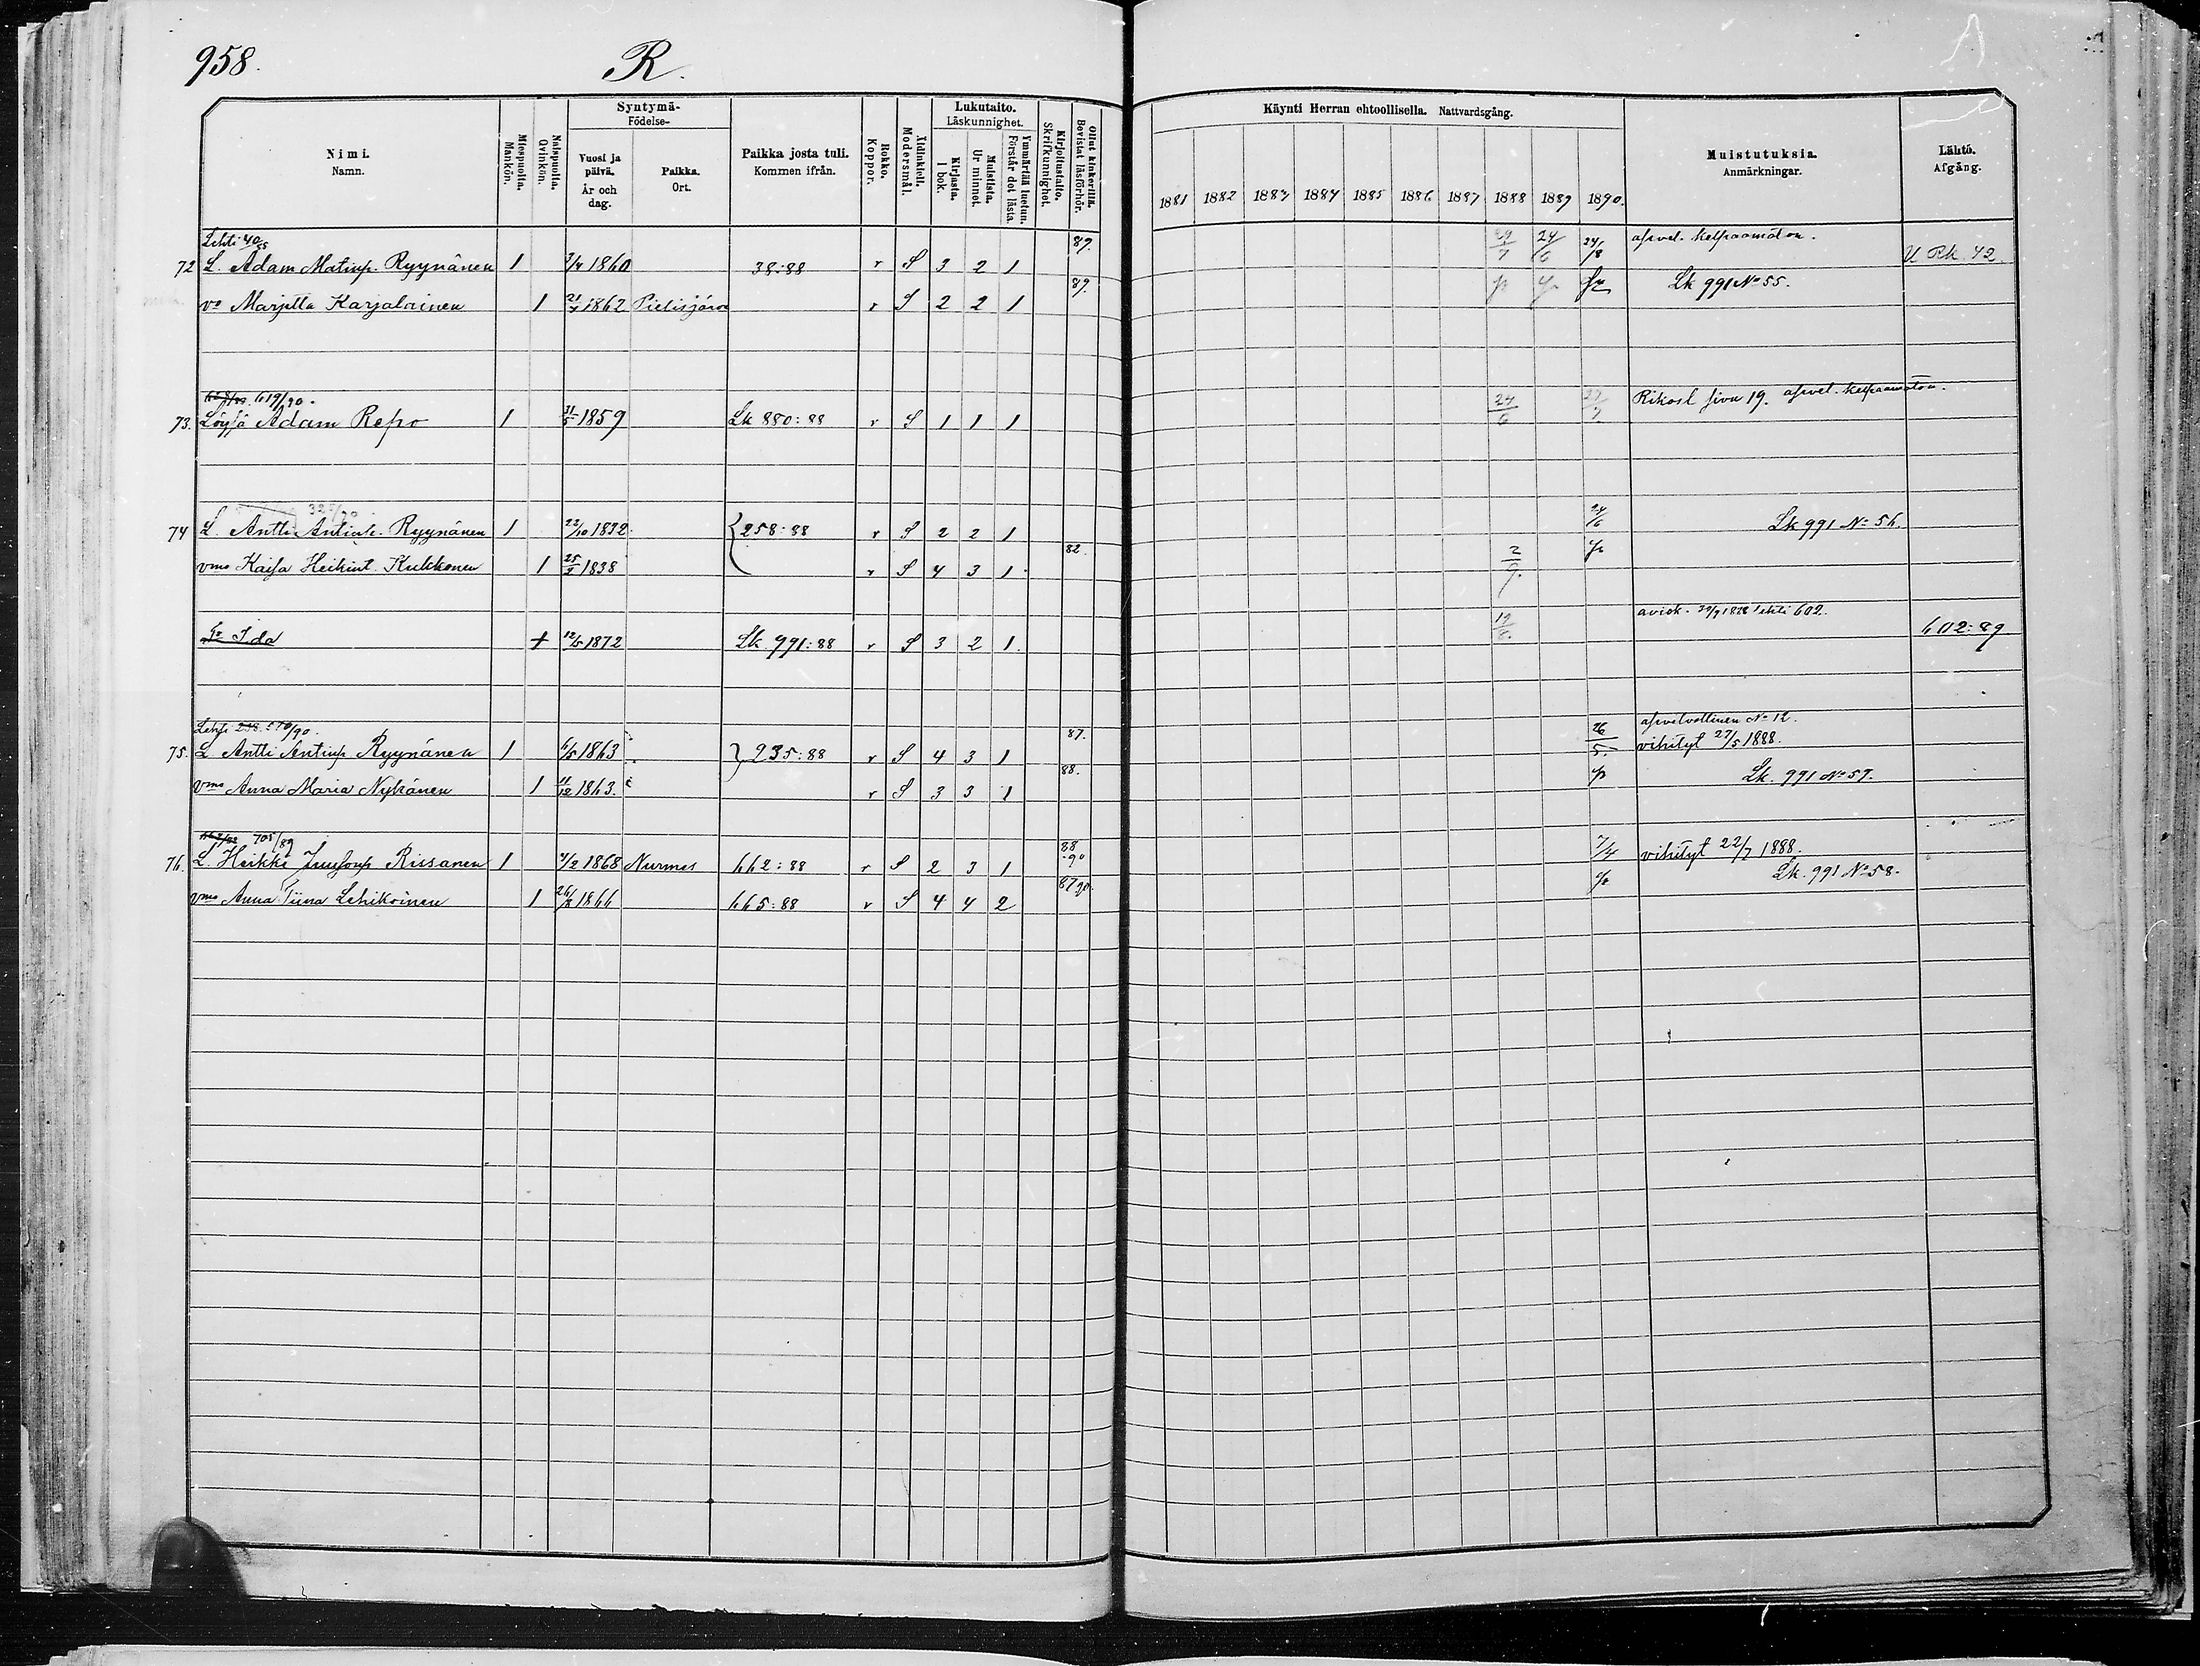 958.
R.
Nimi. Namn.
Miespuolta. Mankön.
Naispuolta. Qvinkön.
Syntymä- Födelse-
Vuosi ja päivä. År och dag.
Paikka. Ort.
Paikka josta tuli. Kommen ifrån.
Rokko. Koppor.
Äidinkieli. Modersmål.
Lukutaito. Läskunnighet.
Kirjasta. I bok.
Muistista. Ur minnet.
Ymmärtää luetun. Förstår det lästa.
Kirjoitustaito. Skrifkunnighet.
Ollut kinkerillä. Bevistat läsförhör.
Käynti Herran ehtoollisella. Nattvardsgång.
1881 1882 1883 1884 1885 1886 1887 1888 1889 1890.
Muistutuksia. Anmärkningar.
Lähtö. Afgång.
Lehti 89. 24/6 24/8 asvel. kelpaamaton.
72 L. Adam Matinp. Ryynänen 1 1860 38:88 r S 3 2 1 U Rk. 42
89. Lk 991 No 55.
vo Marjetta Karjalainen 1 1862 Pielisjärvi r S 2 2 1
619/90. 24/6 Rikosl sivu 19. asvel. kelpaamaton.
73. Löysä Adam Repo 1 31/5 1859 Lk 880:88 r S 1 1 1
74 L. Antti Antinp. Ryynänen 1 22/10 1832 258:88 r S 2 2 1 24/6 Lk 991 No 56.
82.
vmo Kaisa Heikint. Kukkonen 1 25/9 1838 r S 4 3 1 2/9.
aviok. 1888 lehti 602.
Tr Ida 12/5 1872 Lk. 991:88 r S 3 2 1. 602:89
Lehti 238. 570/90. 87. 26/5. asvelvollinen No 12.
75. L Antti Antinp Ryynänen 1 6/5 1863 235:88 r S 4 3 1 vihityt 27/5 1888.
88. Lk. 991 No 57.
vmo Anna Maria Nykänen 1 11/12 1863. r S 3 3 1
705/89 88 90 7/4
76. L. Heikki Juusonp Rissanen 1 1868 Nurmes 662:88 r S 2 3 1 vihityt 22/7 1888.
87 90. Lk. 991 No 58.
vmo Anna Tiina Lehikoinen 1 26/8 1866 665:88 r S 4 4 2